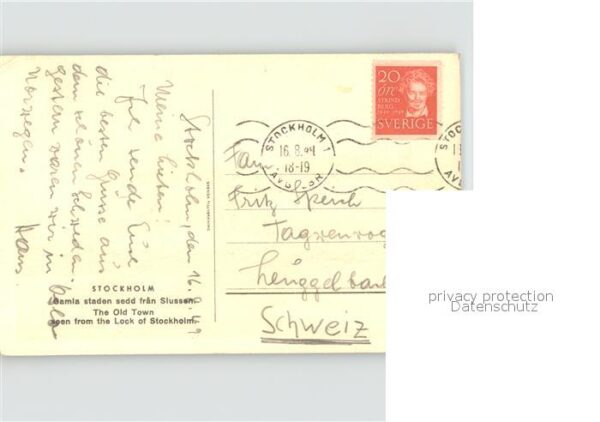 Stockholm, den 16.8.49
Meine Lieben!
Ich sende Euch
die besten Grüsse aus
dem schönen Schweden.
gestern waren wir in Oslo
Norwegen.
Hans
STOCKHOLM
Gamla staden sedd från Slussen.
The Old Town
seen from the Lock of Stockholm.
20
öre
STRIND
BERG
1849-1949
SVERIGE
STOCKHOLM 1
16.8.49
18-19
AVG.
Fam
Fritz
Schweiz
privacy protection
Datenschutz